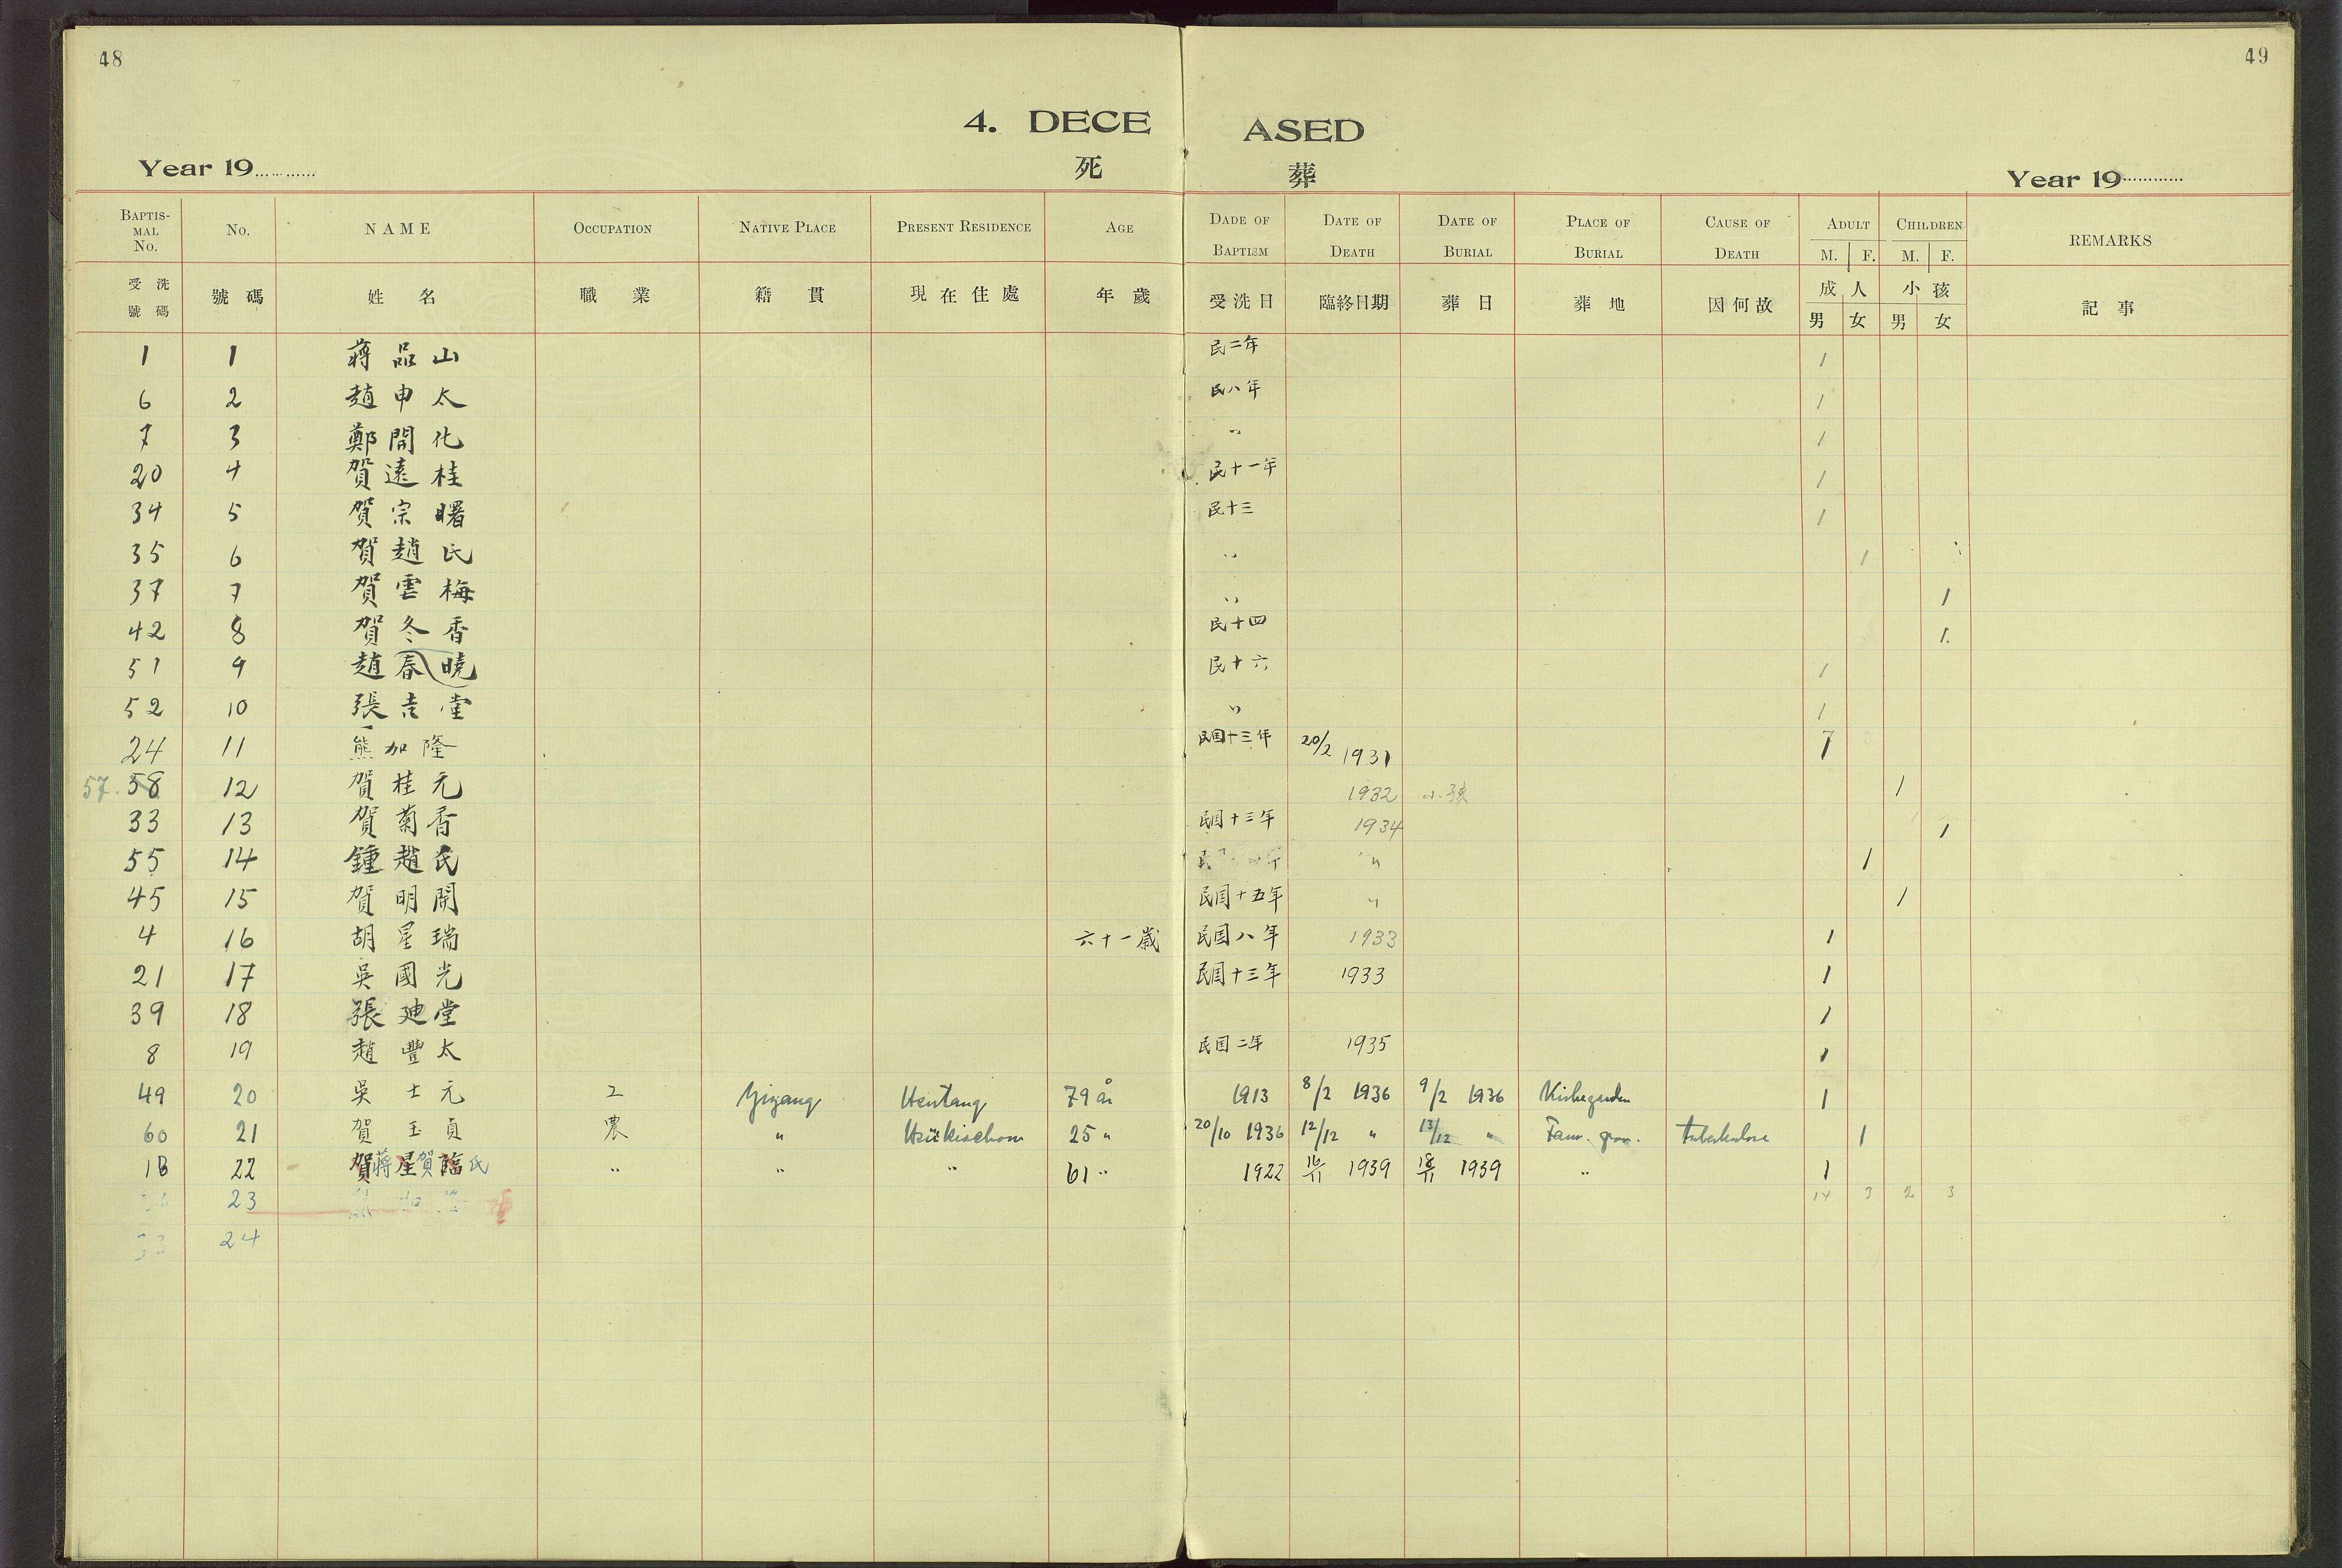 48
49
4. DECEASED
死 葬
Year 19............ Year 19............
BAPTISMAL No. No. NAME OCCUPATION NATIVE PLACE PRESENT RESIDENCE AGE DADE OF BAPTISM DATE OF DEATH DATE OF BURIAL PLACE OF BURIAL CAUSE OF DEATH ADULT M. F. CHILDREN M. F. REMARKS
受洗號碼 號碼 姓名 職業 籍貫 現在住處 年歲 受洗日 臨終日期 葬日 葬地 因何故 成人 男 女 小孩 男 女 記事
1 1 蔣品山 民二年 1
6 2 趙申太 民八年 1
7 3 鄭開化 " 1
20 4 賀遠桂 民十一年 1
34 5 賀宗曙 民十三 1
35 6 賀趙氏 " 1
37 7 賀雲梅 " 1
42 8 賀冬香 民十四 1.
51 9 趙春曉 民十六 1
52 10 張吉堂 " 1
24 11 熊加隆 民囯十三年 20/2 1931 1
57. 58 12 賀桂元 1932 小孩 1
33 13 賀菊香 民囯十三年 1934 1
55 14 鍾趙氏 " 1
45 15 賀明開 民囯十五年 " 1
4 16 胡星瑞 六十一歲 民囯八年 1933 1
21 17 吳國光 民囯十三年 1933 1
39 18 張廸堂 1
8 19 趙豐太 民囯二年 1935 1
49 20 吳士元 工 Yiyang 79 år 1913 8/2 1936 9/2 1936 1
60 21 賀玉貞 農 " 25 " 20/10 1936 12/12 " 13/12 " Fam. grav. tuberkulose 1
18 22 賀蔣星賀臨氏 " " " 61 " 1922 16/11 1939 18/11 1939 " 1
23 14 3 2 3
33 24